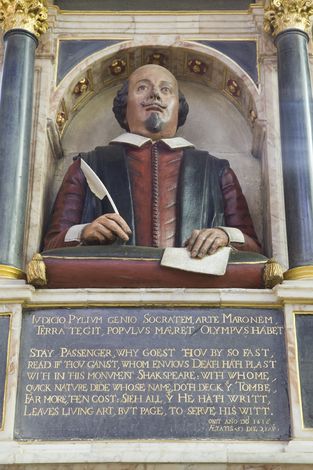 IVDICIO PYLIVM, GENIO SOCRATEM, ARTE MARONEM,
TERRA TEGIT, POPVLVS MÆRET, OLYMPVS HABET
STAY PASSENGER, WHY GOEST THOV BY SO FAST,
READ IF THOV CANST, WHOM ENVIOVS DEATH HATH PLAST
WITH IN THIS MONVMENT SHAKSPEARE: WITH WHOME,
QVICK NATVRE DIDE: WHOSE NAME, DOTH DECK Yͤ TOMBE,
FAR MORE, THEN COST: SIEH ALL, Yͭ HE HATH WRITT,
LEAVES LIVING ART, BVT PAGE, TO SERVE HIS WITT.
OBIIT AÑO DOⁱ 1616
ÆTATIS 53 DIE 23 APR.